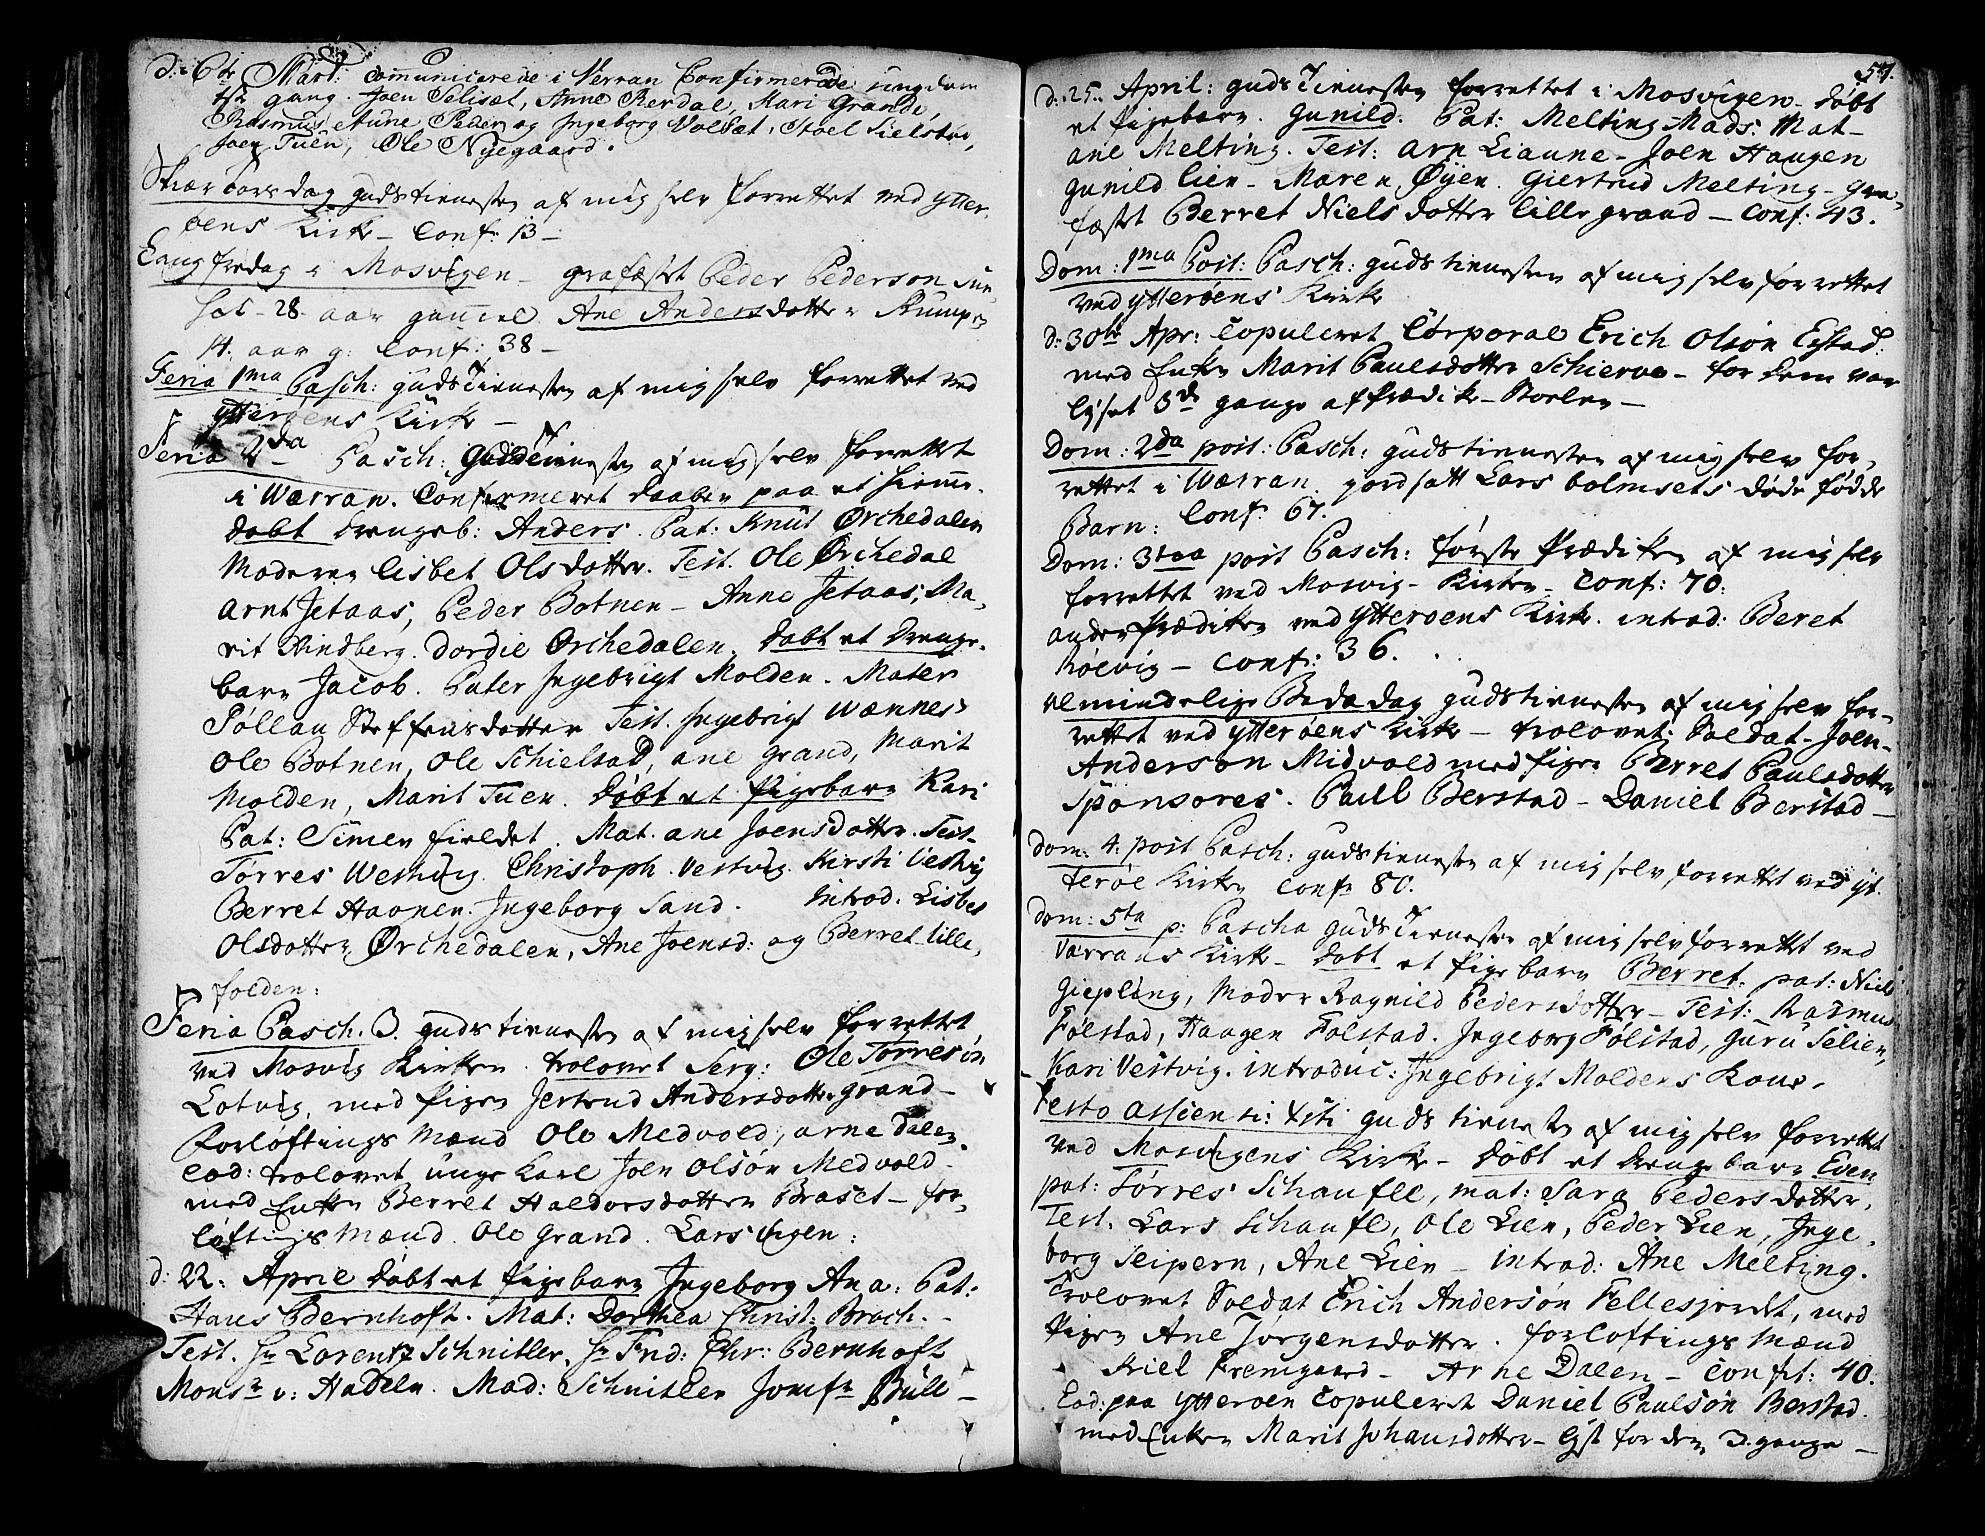 d: 6te Mart: communicerede i Verran Confirmerede ungdom
1ste gang. Joen Selisæt, Anne Rerdal, Kari Grande,
Rasmus Aune Peder og Ingeborg Volsæt, Stoel Sielstad,
Joen Tuén, Ole Nyegaard.
Skiærtorsdag gudstienesten af mig selv forrettet ved Ytter-
öens Kirke – Conf: 13 –
Langfredag i Mosvigen – grafæstet Peder Pederson
28 aar gammel. Ane Andersdotter Rumpen
14. aar g: Conf: 38 –
Feria 1ma Pasch: gudsTienesten af mig selv forrettet ved
Ytterøens Kirke –
Feria 2da Pasch: gudsTienesten af mig selv forrettet
i Wærran. Confirmeret daaben paa et hiemme-
døbt drengeb: Anders. Pat: Knut Ørchedalen
Moderen Lisbet Olsdotter. Test. Ole Ørchedal
Arnt Jetaas, Peder Botnen – Anne Jetaas, Ma-
rit Vindberg. Dordie Ørchedalen. Døbt et drenge-
barn Jacob. Pater Ingebrigt Molden. Mater
Pöllau Steffensdotter Test. Ingebrigt Wænnes
Ole Botnen, Ole Schielstad, ane grand, Marit
Molden, Marit Tuen. Døbt et Pigebarn Kari
Pat: Simen fieldet. Mat. ane Joensdotter. Test-
Törres Westvig. Christoph. Vestvig. Kirsti Vestvig
Berret Haanen. Ingeborg Sand. Introd. Lisbet
Olsdotter Ørchedalen, Ane Joensd: og Berret lille-
folden:
Feria Pasch. 3. gudstienesten af mig selv forrettet
ved Mosvig Kirken. trolovet Serg: Ole Törresön
Lotvig, med Pigen Jertrud Andersdotter grand –
Forløftings Mænd Ole Medvold, arne Dalen.
Eod: trolovet unge Karl Joen Olsön Medvold –
med Enken Berret Haldorsdotter Braset – for-
løftings Mænd. Ole grand. Lars Vigen:
d: 22: April døbt et Pigebarn Ingeborg Ana: Pat:
Hans Bernhoft. Mat: Dorthea Christ: Broch. –
Test. Hr Lorentz Schnitler, Hr Frid: Chr: Bernhoft
Monsr v: Hadeln. Mad: Schnitler Jomfr Büll –
57.
d: 25. April: gudsTienesten forrettet i Mosvigen – døbt
et Pigebarn. Gunild. Pat: Melting Mads: Mat-
ane Melting. Test: Arn Liaune – Joen Haugen
gunild Lien – Maren Øyen. Giertrud Melting – gra-
fæstet Berret Nielsdotter lille grand – Conf: 43.
Dom: 1ma Post: Pasch: gudstienesten af mig selv forrettet
ved Ytterøens Kirke
d: 30te Apr: Copuleret Corporal Erich Olsön Estad.
med Enken Marit Paulsdotter Schierve – for dem var
lyset 3de gange af Prædike-Stoelen –
Dom: 2da post: Pasch: gudstienesten af mig selv for-
rettet i Wærran. jordsatt Lars bolmsets døde fødde
Barn: Conf: 67.
Dom: 3tia post Pasch: første Prædiken af mig selv
forrettet ved Mosvig – Kirken – Conf: 70.
anden Prædiken ved Ytterøens Kirke. introd: Beret
Röevig – Conf: 36.
almindelige Bededag gudstienesten af mig selv for-
rettet ved Ytterøens Kirke – trolovet: Soldat – Joen-
Anderson Midvold med Pigen Berret Paulsdotter
Sponsores. Paull Berstad – Daniel Berstad –
Dom: 4: post Pasch: gudstienesten af mig selv forrettet ved Yt-
terøe Kirken Conf: 80.
Dom: 5ta p: Pascha gudsTienesten af mig selv forrettet ved
Varrans Kirke – døbt et Pigebarn Berret: pat: Niels
Giepling, Moder Ragnild Pedersdotter – Test: Rasmus
Folstad, Haagen Folstad. Ingeborg Folstad, Guru Selien,
Kari Vestvig. introduc: Ingebrigt Moldens Kone.
Festo assensi: Xsti gudstienesten af mig selv forrettet
ved Mosvigens Kirke – døbt et Drengebarn Even
pat: Törres Schaufle, mat: Sara Pedersdotter.
Test. Lars Schaufle, Ole Lien, Peder Lien, Inge-
borg Seipern, Ane Lien – introd: Ane Melting.
Trolovet Soldat Erich Andersön Fellesjordet, med
Pigen Ane Jörgensdotter. forløftings mænd
Kiel Fremgaard – Arne Dalen – Confit: 40.
Eod: paa Ytterøen Copuleret Daniel Paulsön Berstad.
med Enken Marit Johansdotter – lyst for dem 3. gange –